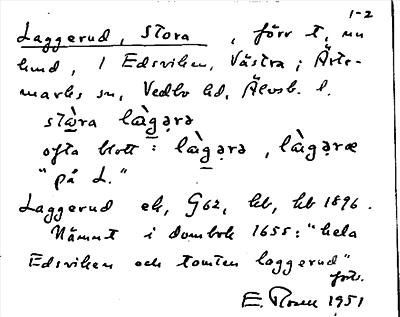 1-2
Laggerud, Stora, förr t., nu
lund, i Edsviken, Västra; Ärte-
marks sn, Vedbo hd, Älvsb. l.
stὼra lὰg̣ərə
ofta blott: lὰg̣ərə, lὰg̣əræ
"på L."
Laggerud ek, G62, hb, hb 1896.
Nämnt i dombok 1655: "hela
Edsviken och tomten laggerud"
forts.
E. Rosen 1951